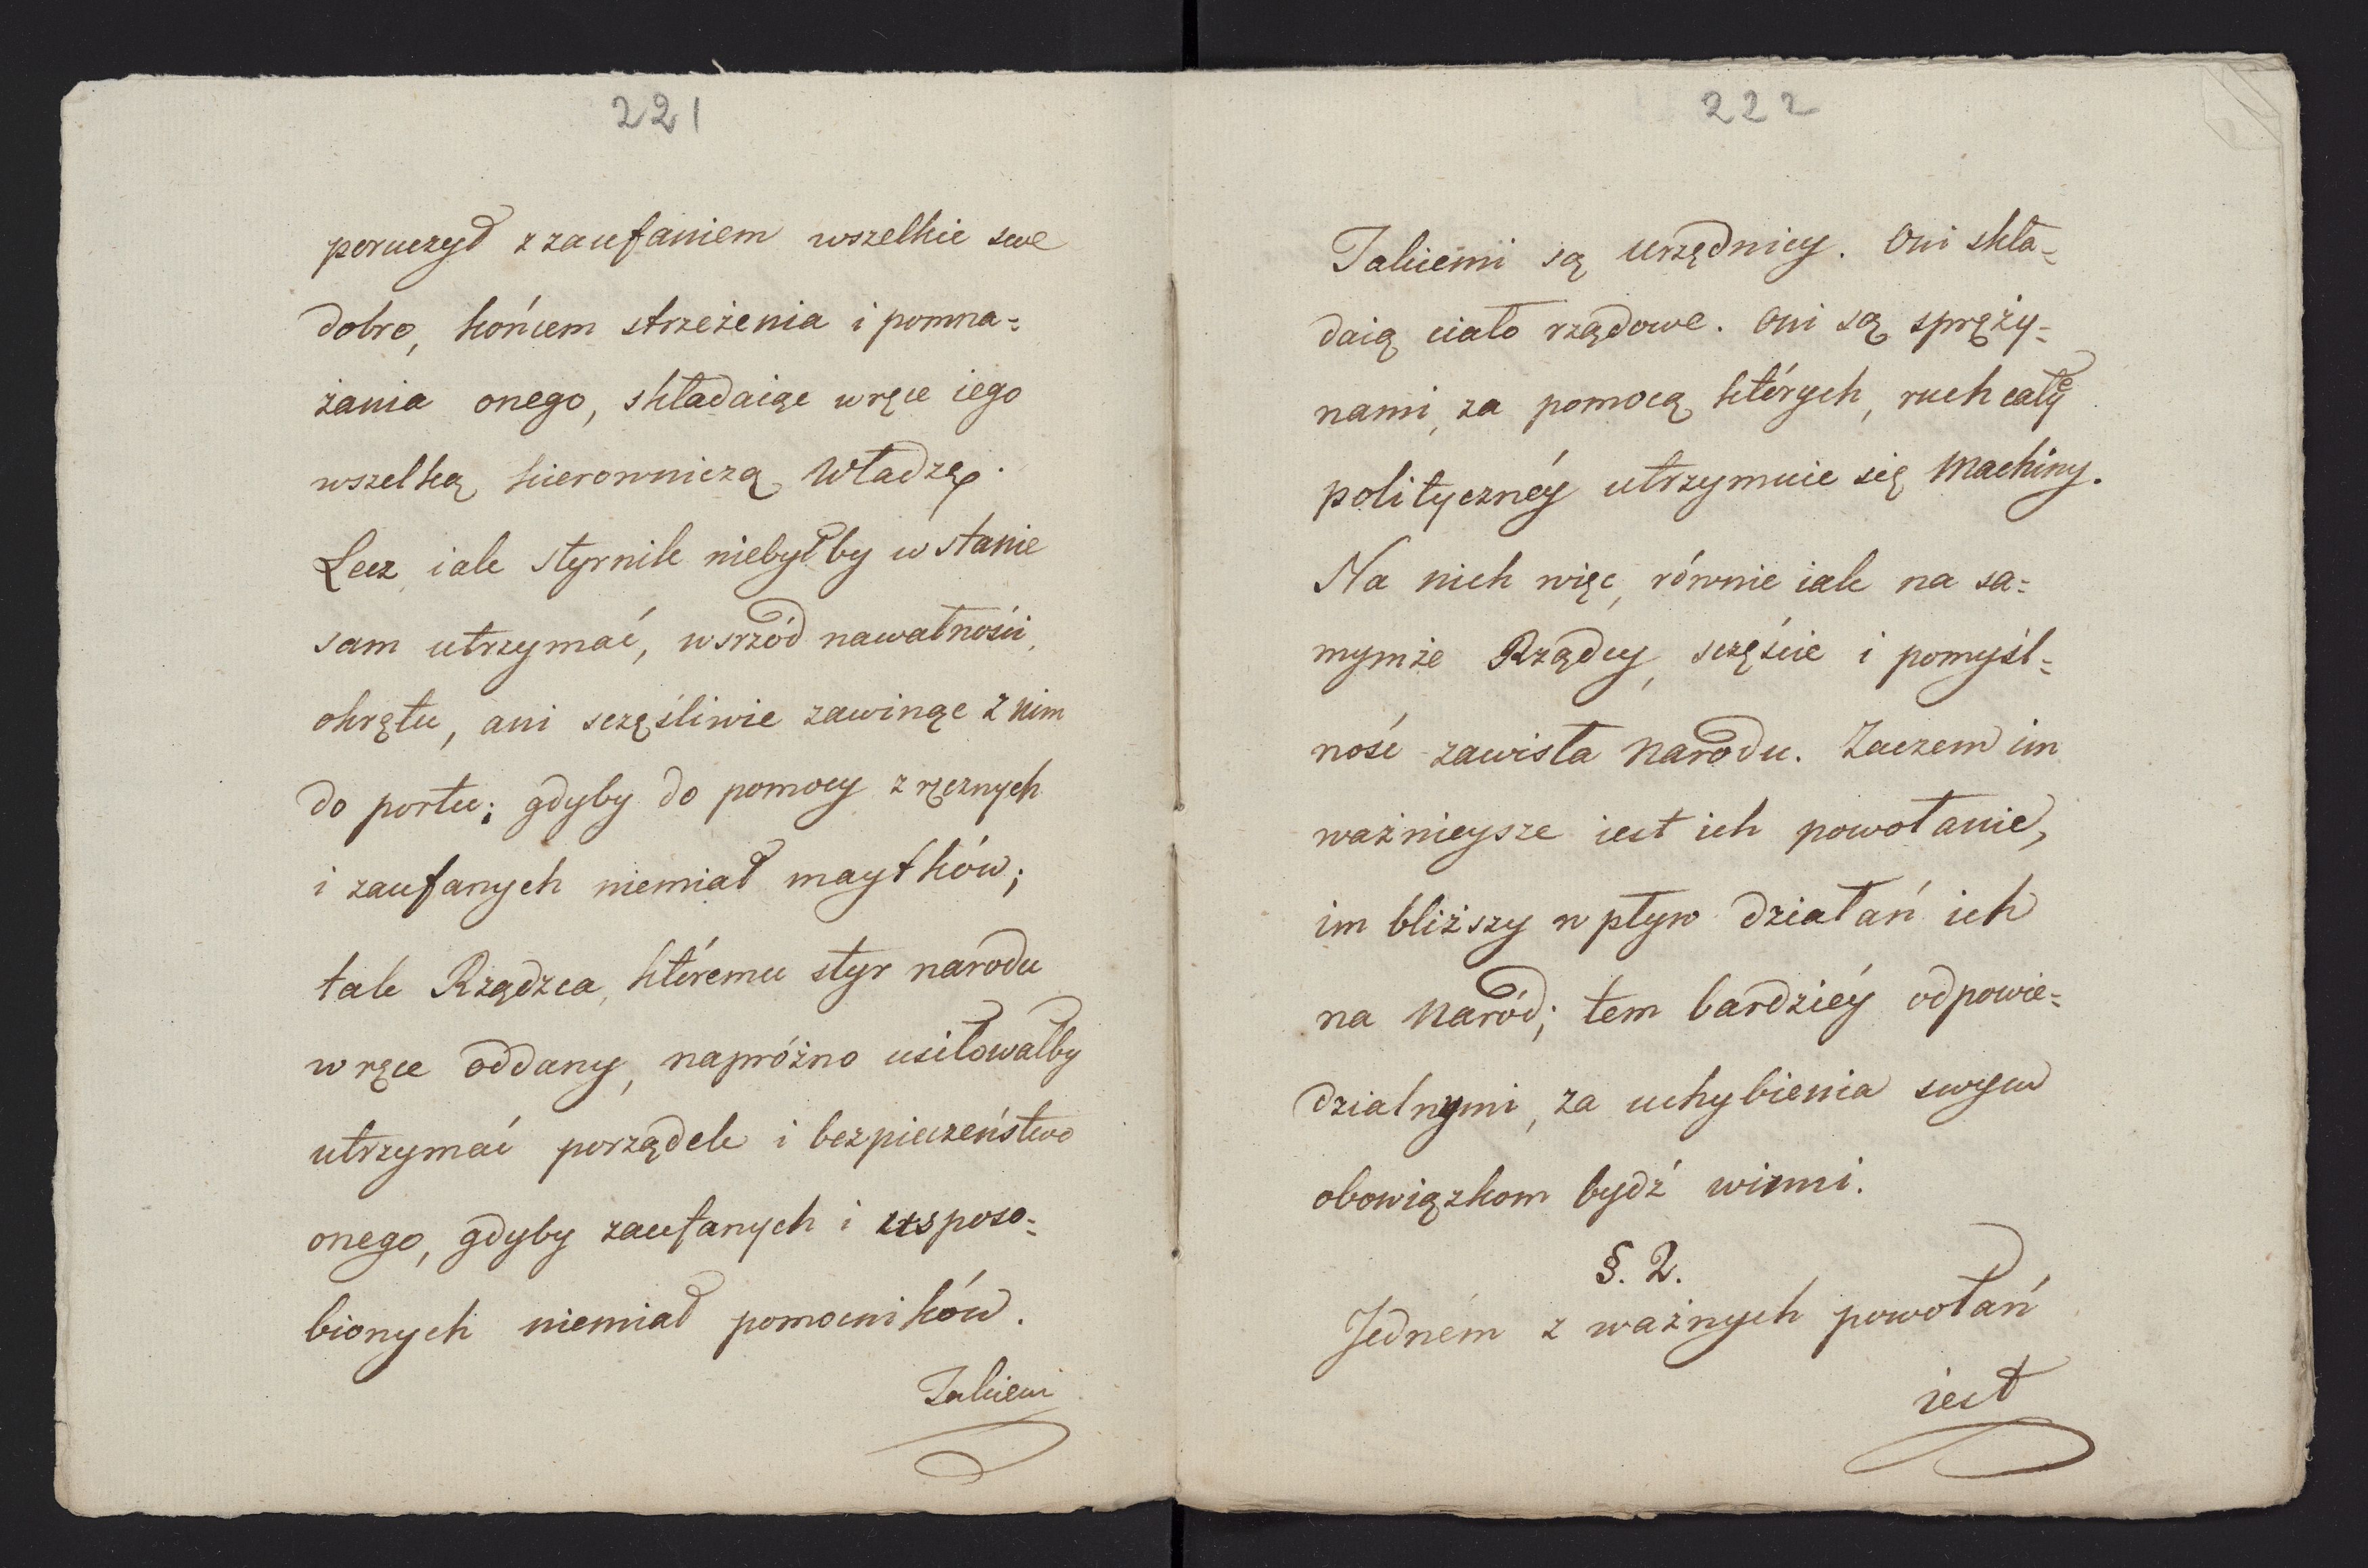 221
poruczył z zaufaniem wszelkie swe
dobro, końcem strzeżenia i pomna=
żania onego, składaiąc w ręce iego
wszelką kierowniczą Władzę.
Lecz iak styrnik niebyłby w stanie
sam utrzymać, wsrzód nawałności,
okrętu, ani sczęśliwie zawinąc z nim
do portu; gdyby do pomocy zręcznych
i zaufanych niemiał maytków;
tak Rządzca, któremu styr narodu
w ręce oddany, napróżno usiłowałby
utrzymać porządek i bezpieczeństwo
onego, gdyby zaufanych i usposo=
bionych niemiał pomocników.
Takiemi
222
Takiemi są urzędnicy. Oni skła=
daią ciało rządowe. Oni są spręży=
nami, za pomocą których, ruch całéy
politycznéy utrzymuie się Machiny.
Na nich więc, równie iak na sa=
mymże Rządcy, sczęście i pomyśl=
ność zawisła Narodu. Zaczem im
ważnieysze iest ich powołanie,
im bliższy wpływ działań ich
na Naród; tem bardziéy odpowie=
dzialnymi, za uchybienia swym
obowiązkom bydź winni.
§. 2.
Jedném z ważnych powołań
iest